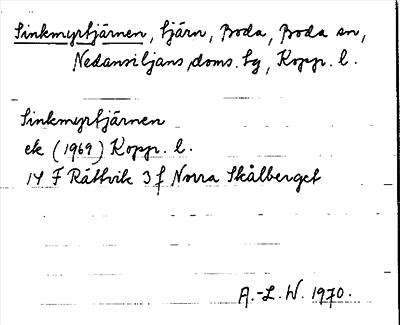 Sinkmyrtjärnen, tjärn, Boda, Boda sn,
Nedansiljans doms. tg, Kopp. l.
Sinkmyrtjärnen
ek (1969) Kopp. l.
14 F Rättvik 3 f Norra Skålberget
A.-L. W. 1970.